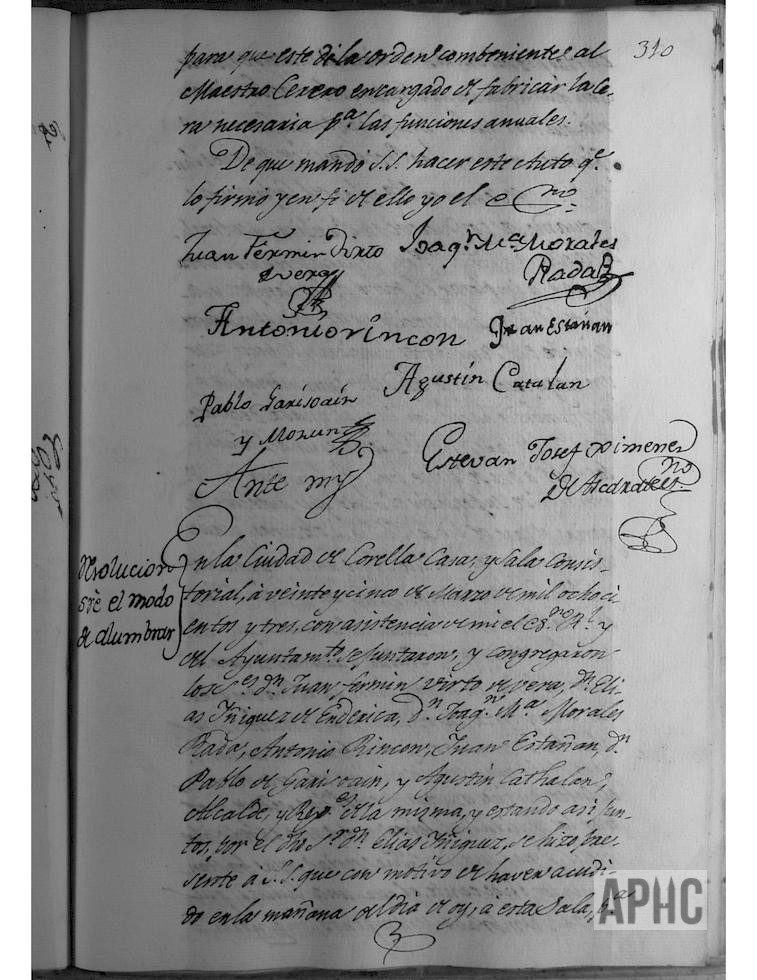 310
para que este dé la orden combeniente al
Maestro Cerero encargado de fabricar la Ce-
ra necesaria pª. las funciones anuales.
De que mandó S.S. hacer este Auto qe.
lo firmó y en fe de ello yo el eno.
Juan Fermin Virto
de vera
Joaqn. Mª Morales
Rada
Antonio rincon
Juan Estañan
Agustin Catalan
Pablo Garisoain
y Morun
Estevan Josef ximenez
de Ascarate eno.
Ante my
Resolucion
sre el modo
de alumbrar
En la Ciudad de Corella Casa, y Sala Consis-
torial, à veinte y cinco de Marzo de mil ochoci-
entos y tres, con asistencia de mi el esno. Rl. y
del Ayuntamto. se juntaron, y congregaron
los Ses. dn. Juan fermin Virto de vera, dn. Eli-
as Yñiguez de Enderica, dn. Joaqn. Mª Morales
Rada, Antonio Rincon, Juan Estañan, dn.
Pablo de Garisoain, y Agustin Cathalan,
Alcalde, y Rexes. de la misma, y estando asi jun-
tos, por el dho Sr. dn. Elias Yñiguez, se hizo pre-
sente à S.S. que con motivo de haver acudi-
do en la mañana del dia de oy, à esta Sala, pª
APHC